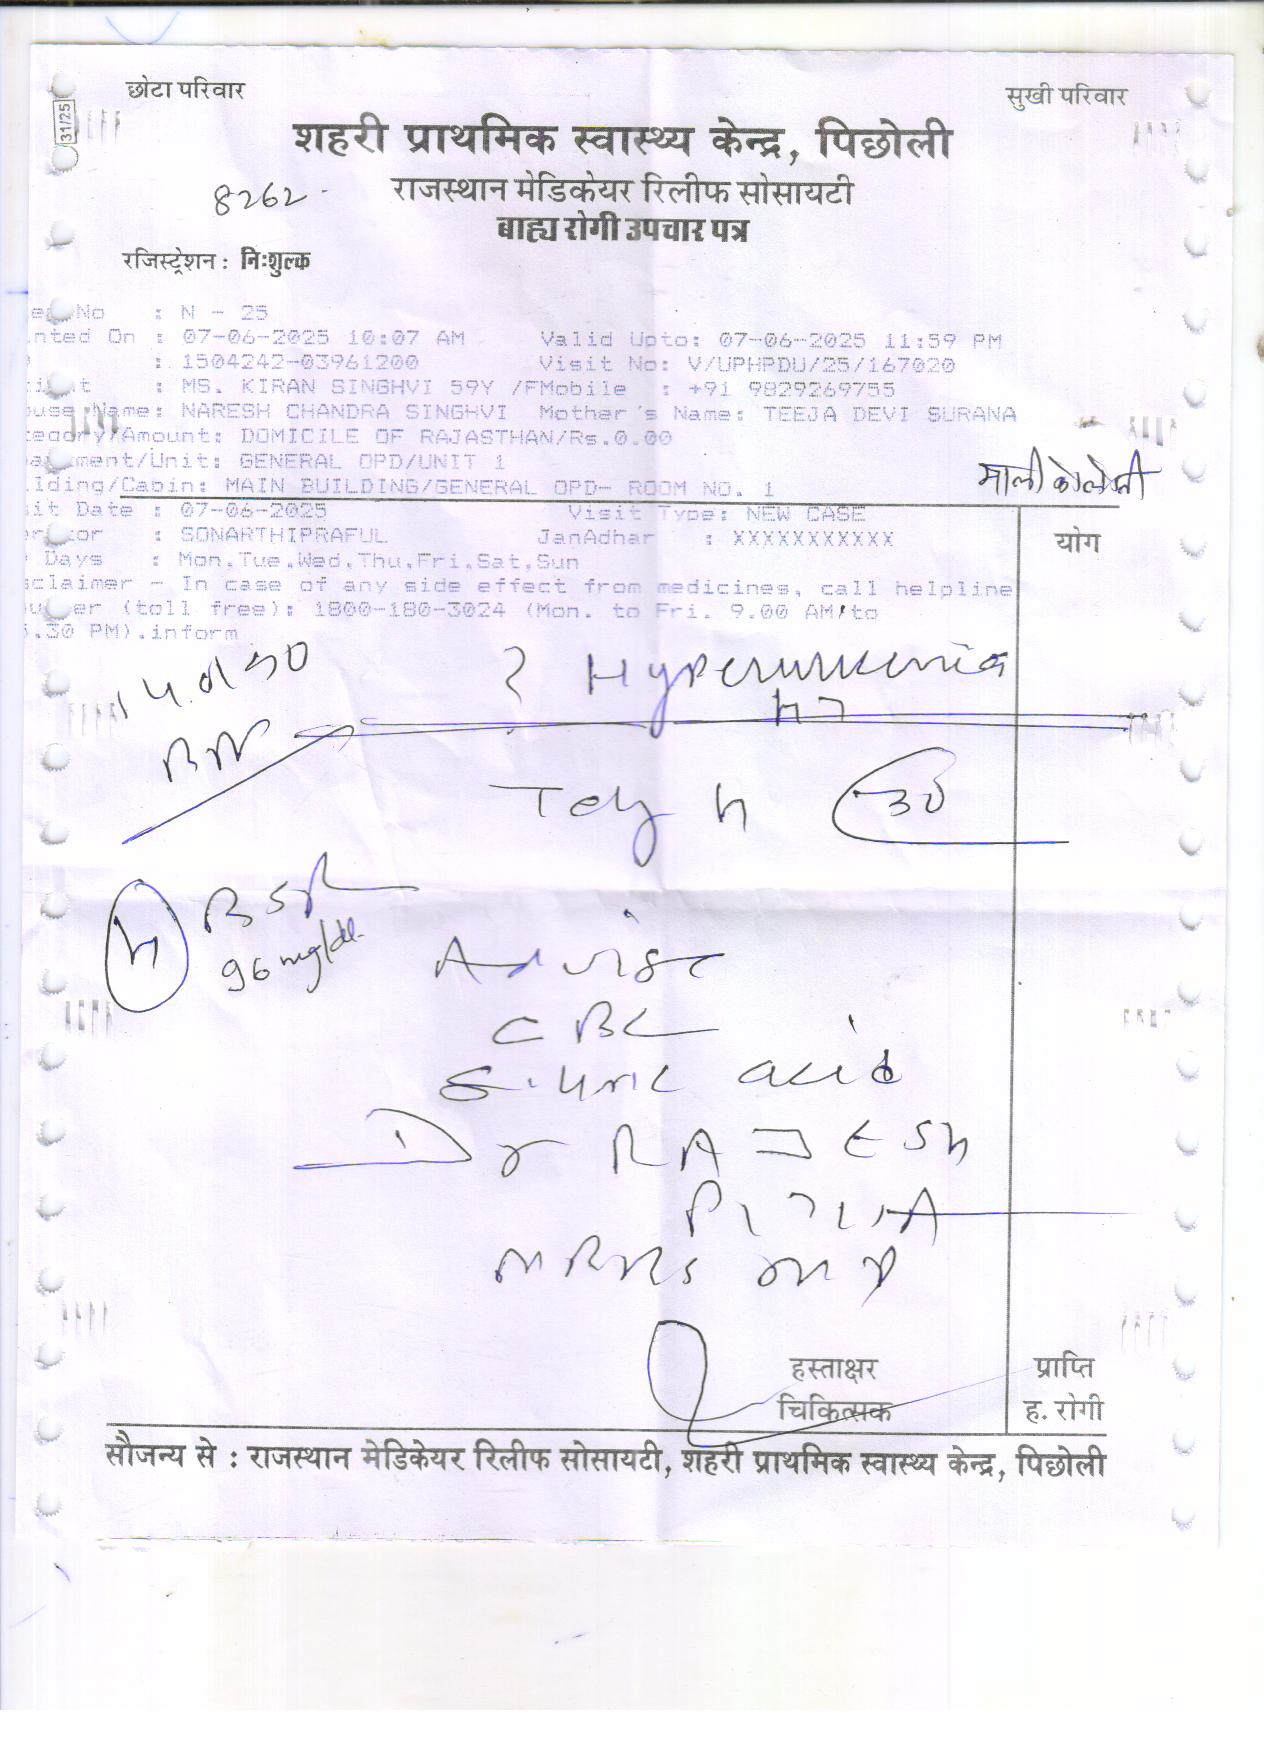 छोटा परिवार सुखी परिवार
31/25
शहरी प्राथमिक स्वास्थ्य केन्द्र, पिछोली
8262 राजस्थान मेडिकेयर रिलीफ सोसायटी
बाह्य रोगी उपचार पत्र
रजिस्ट्रेशन : निःशुल्क
No : N - 25
nted On : 07-06-2025 10:07 AM Valid Upto: 07-06-2025 11:59 PM
: 1504242-03961200 Visit No: V/UPHPDU/25/167020
: MS. KIRAN SINGHVI 59Y /FMobile : +91 9829269755
Name: NARESH CHANDRA SINGHVI Mother's Name: TEEJA DEVI SURANA
tegory/Amount: DOMICILE OF RAJASTHAN/Rs.0.00
ment/Unit: GENERAL OPD/UNIT 1
lding/Cabin: MAIN BUILDING/GENERAL OPD- ROOM NO. 1
sit Date : 07-06-2025 Visit Type: NEW CASE
tor : SONARTHIPRAFUL JanAdhar : XXXXXXXXXXX
योग
Days : Mon,Tue,Wed,Thu,Fri,Sat,Sun
sclaimer - In case of any side effect from medicines, call helpline
er (toll free): 1800-180-3024 (Mon. to Fri. 9.00 AM to
.30 PM).inform
?
30
BSR
96 mg/dl.
Advise
CBC
S. uric acid
Dr RAJESH
MBBS
हस्ताक्षर प्राप्ति
चिकित्सक ह. रोगी
सौजन्य से : राजस्थान मेडिकेयर रिलीफ सोसायटी, शहरी प्राथमिक स्वास्थ्य केन्द्र, पिछोली